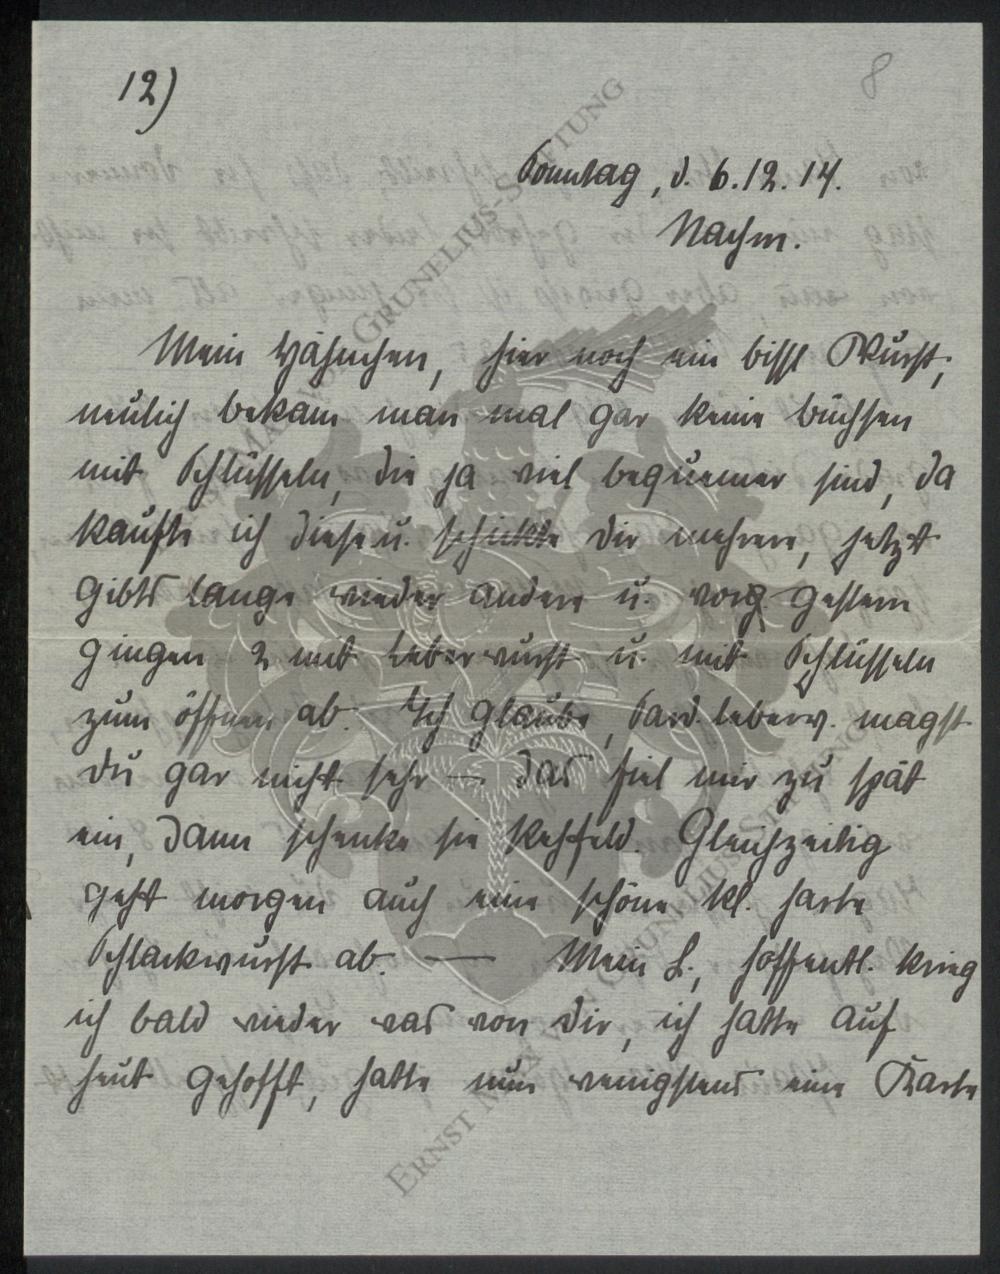 12)
8
Sonntag, d. 6.12.14.
Nachm.
Mein Hähnchen, hier noch ein bissl Wurst,
neulich bekam man mal gar keine büchsen
mit Schlüsseln, die ja viel bequemer sind, da
kaufte ich diese u. schickte dir mehrere, jetzt
gibts lange wieder andere u. vorg. gestern
gingen 2 mit Leberwurst u. mit Schlüsseln
zum öffnen ab. Ich glaube, Sard.leberw. magst
du gar nicht sehr — das fiel mir zu spät
ein, dann schenke sie Rehfeld. Gleichzeitig
geht morgen auch eine schöne kl. harte
Schlackwurst ab. — Mein L., hoffentl. krieg
ich bald wieder was von dir, ich hatte auf
heut gehofft, hatte nun wenigstens eine Karte
ERNST MAX VON GRUNELIUS-STIFTUNG
ERNST MAX VON GRUNELIUS-STIFTUNG